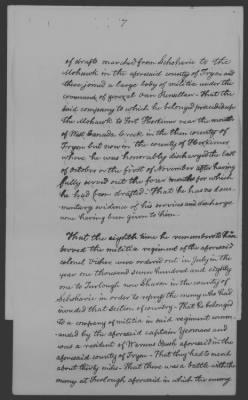 7
of drafts marched from Schoharie to the
Mohawk in the aforesaid county of Tryon and
there joined a large body of militia under the
command of general Van Rensselaer - That the
said company to which he belonged proceeded up
the Mohawk to Fort Herkimer near the mouth
of West Canada creek in the then county of
Tryon but now in the county of Herkimer
where he was honorably discharged the last
of October or the first of November after having
fully served out the four months for which
he had been drafted. That he has no docu-
mentary evidence of his services and discharge
now having been given to him.
That the eighth time he remembers to have
served the militia regiment of the aforesaid
colonel Visher were ordered out in July in the
year one thousand seven hundred and eighty
one to Turlough now Sharon in the county of
Schoharie in order to repress the enemy who had
invaded that section of country. That he belonged
to a company of militia in said regiment comm-
anded by the aforesaid captain Yeomans and
was a resident of Warrens Bush aforesaid in the
aforesaid county of Tryon - That they had to march
about thirty miles. That there was a battle with the
enemy at Turlough aforesaid in which the enemy